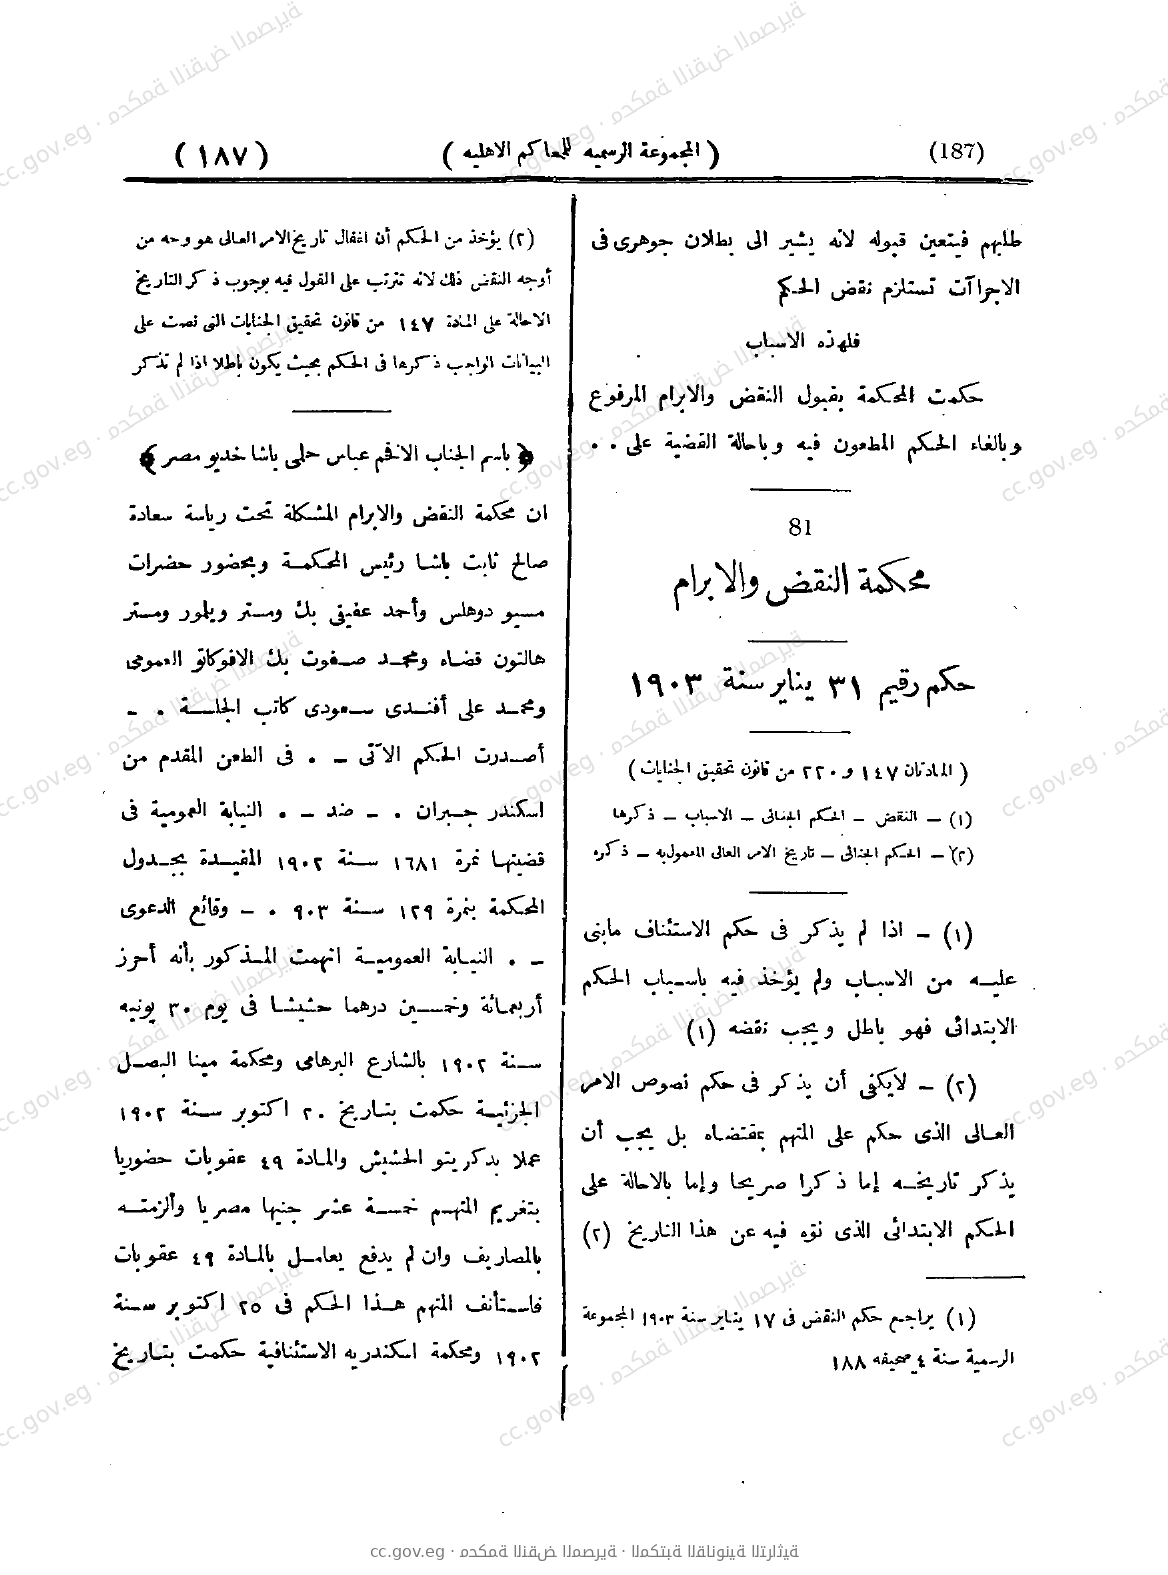 (187) ( المجموعة الرسميه للمحاكم الاهليه ) ( ١٨٧ )
طلبهم فيتعين قبوله لانه يشير الى بطلان جوهرى فى
الاجراآت تستلزم نقض الحكم
فلهذه الاسباب
حكمت المحكمة بقبول النقض والابرام المرفوع
وبالغاء الحكم المطعون فيه وباحالة القضية على . .
81
محكمة النقض والابرام
حكم رقيم ٣١ يناير سنة ١٩٠٣
( المادتان ١٤٧ و ٢٢٠ من قانون تحقيق الجنايات )
(١) – النقض – الحكم الجنائى – الاسباب – ذكرها
(٢) – الحكم الجنائى – تاريخ الامر العالى المعمول به – ذكره
(١) – اذا لم يذكر فى حكم الاستئناف مابنى
عليه من الاسباب ولم يؤخذ فيه باسباب الحكم
الابتدائى فهو باطل ويجب نقضه (١)
(٢) – لايكفى أن يذكر فى حكم نصوص الامر
العالى الذى حكم على المتهم بمقتضاه بل يجب أن
يذكر تاريخه إما ذكرا صريحا وإما بالاحالة على
الحكم الابتدائى الذى نوّه فيه عن هذا التاريخ (٢)
(١) يراجع حكم النقض فى ١٧ يناير سنة ١٩٠٣ المجموعة
الرسمية سنة ٤ صحيفه ١٨٨
(٢) يؤخذ من الحكم أن اغفال تاريخ الامر العالى هو وجه من
أوجه النقض ذلك لانه تترتب على القول فيه بوجوب ذكر التاريخ
الاحالة على المادة ١٤٧ من قانون تحقيق الجنايات التى نصت على
البيانات الواجب ذكرها فى الحكم بحيث يكون باطلا اذا لم تذكر
﴿ باسم الجناب الافخم عباس حلمى باشا خديو مصر ﴾
ان محكمة النقض والابرام المشكلة تحت رياسة سعادة
صالح ثابت باشا رئيس المحكمة وبحضور حضرات
مسيو دوهلس وأحمد عفيفى بك ومستر ويلمور ومستر
هالتون قضاه ومحمد صفوت بك الافوكاتو العمومى
ومحمد على أفندى سعودى كاتب الجلسة . –
أصدرت الحكم الآتى – . فى الطعن المقدم من
اسكندر جبران . – ضد – . النيابة العمومية فى
قضيتها نمرة ١٦٨١ سنة ١٩٠٢ المقيدة بجدول
المحكمة بنمرة ١٢٩ سنة ٩٠٣ . – وقائع الدعوى
– . النيابة العمومية اتهمت المذكور بأنه أحرز
أربعمائة وخمسين درهما حشيشا فى يوم ٣٠ يونيه
سنة ١٩٠٢ بالشارع البرهامى ومحكمة مينا البصل
الجزئية حكمت بتاريخ ٢٠ اكتوبر سنة ١٩٠٢
عملا بدكريتو الحشيش والمادة ٤٩ عقوبات حضوريا
بتغريم المتهم خمسة عشر جنيها مصريا وألزمته
بالمصاريف وان لم يدفع يعامل بالمادة ٤٩ عقوبات
فاستأنف المتهم هذا الحكم فى ٢٥ اكتوبر سنة
١٩٠٢ ومحكمة اسكندريه الاستئنافية حكمت بتاريخ
cc.gov.eg · محكمة النقض المصرية · المكتبة القانونية التراثية